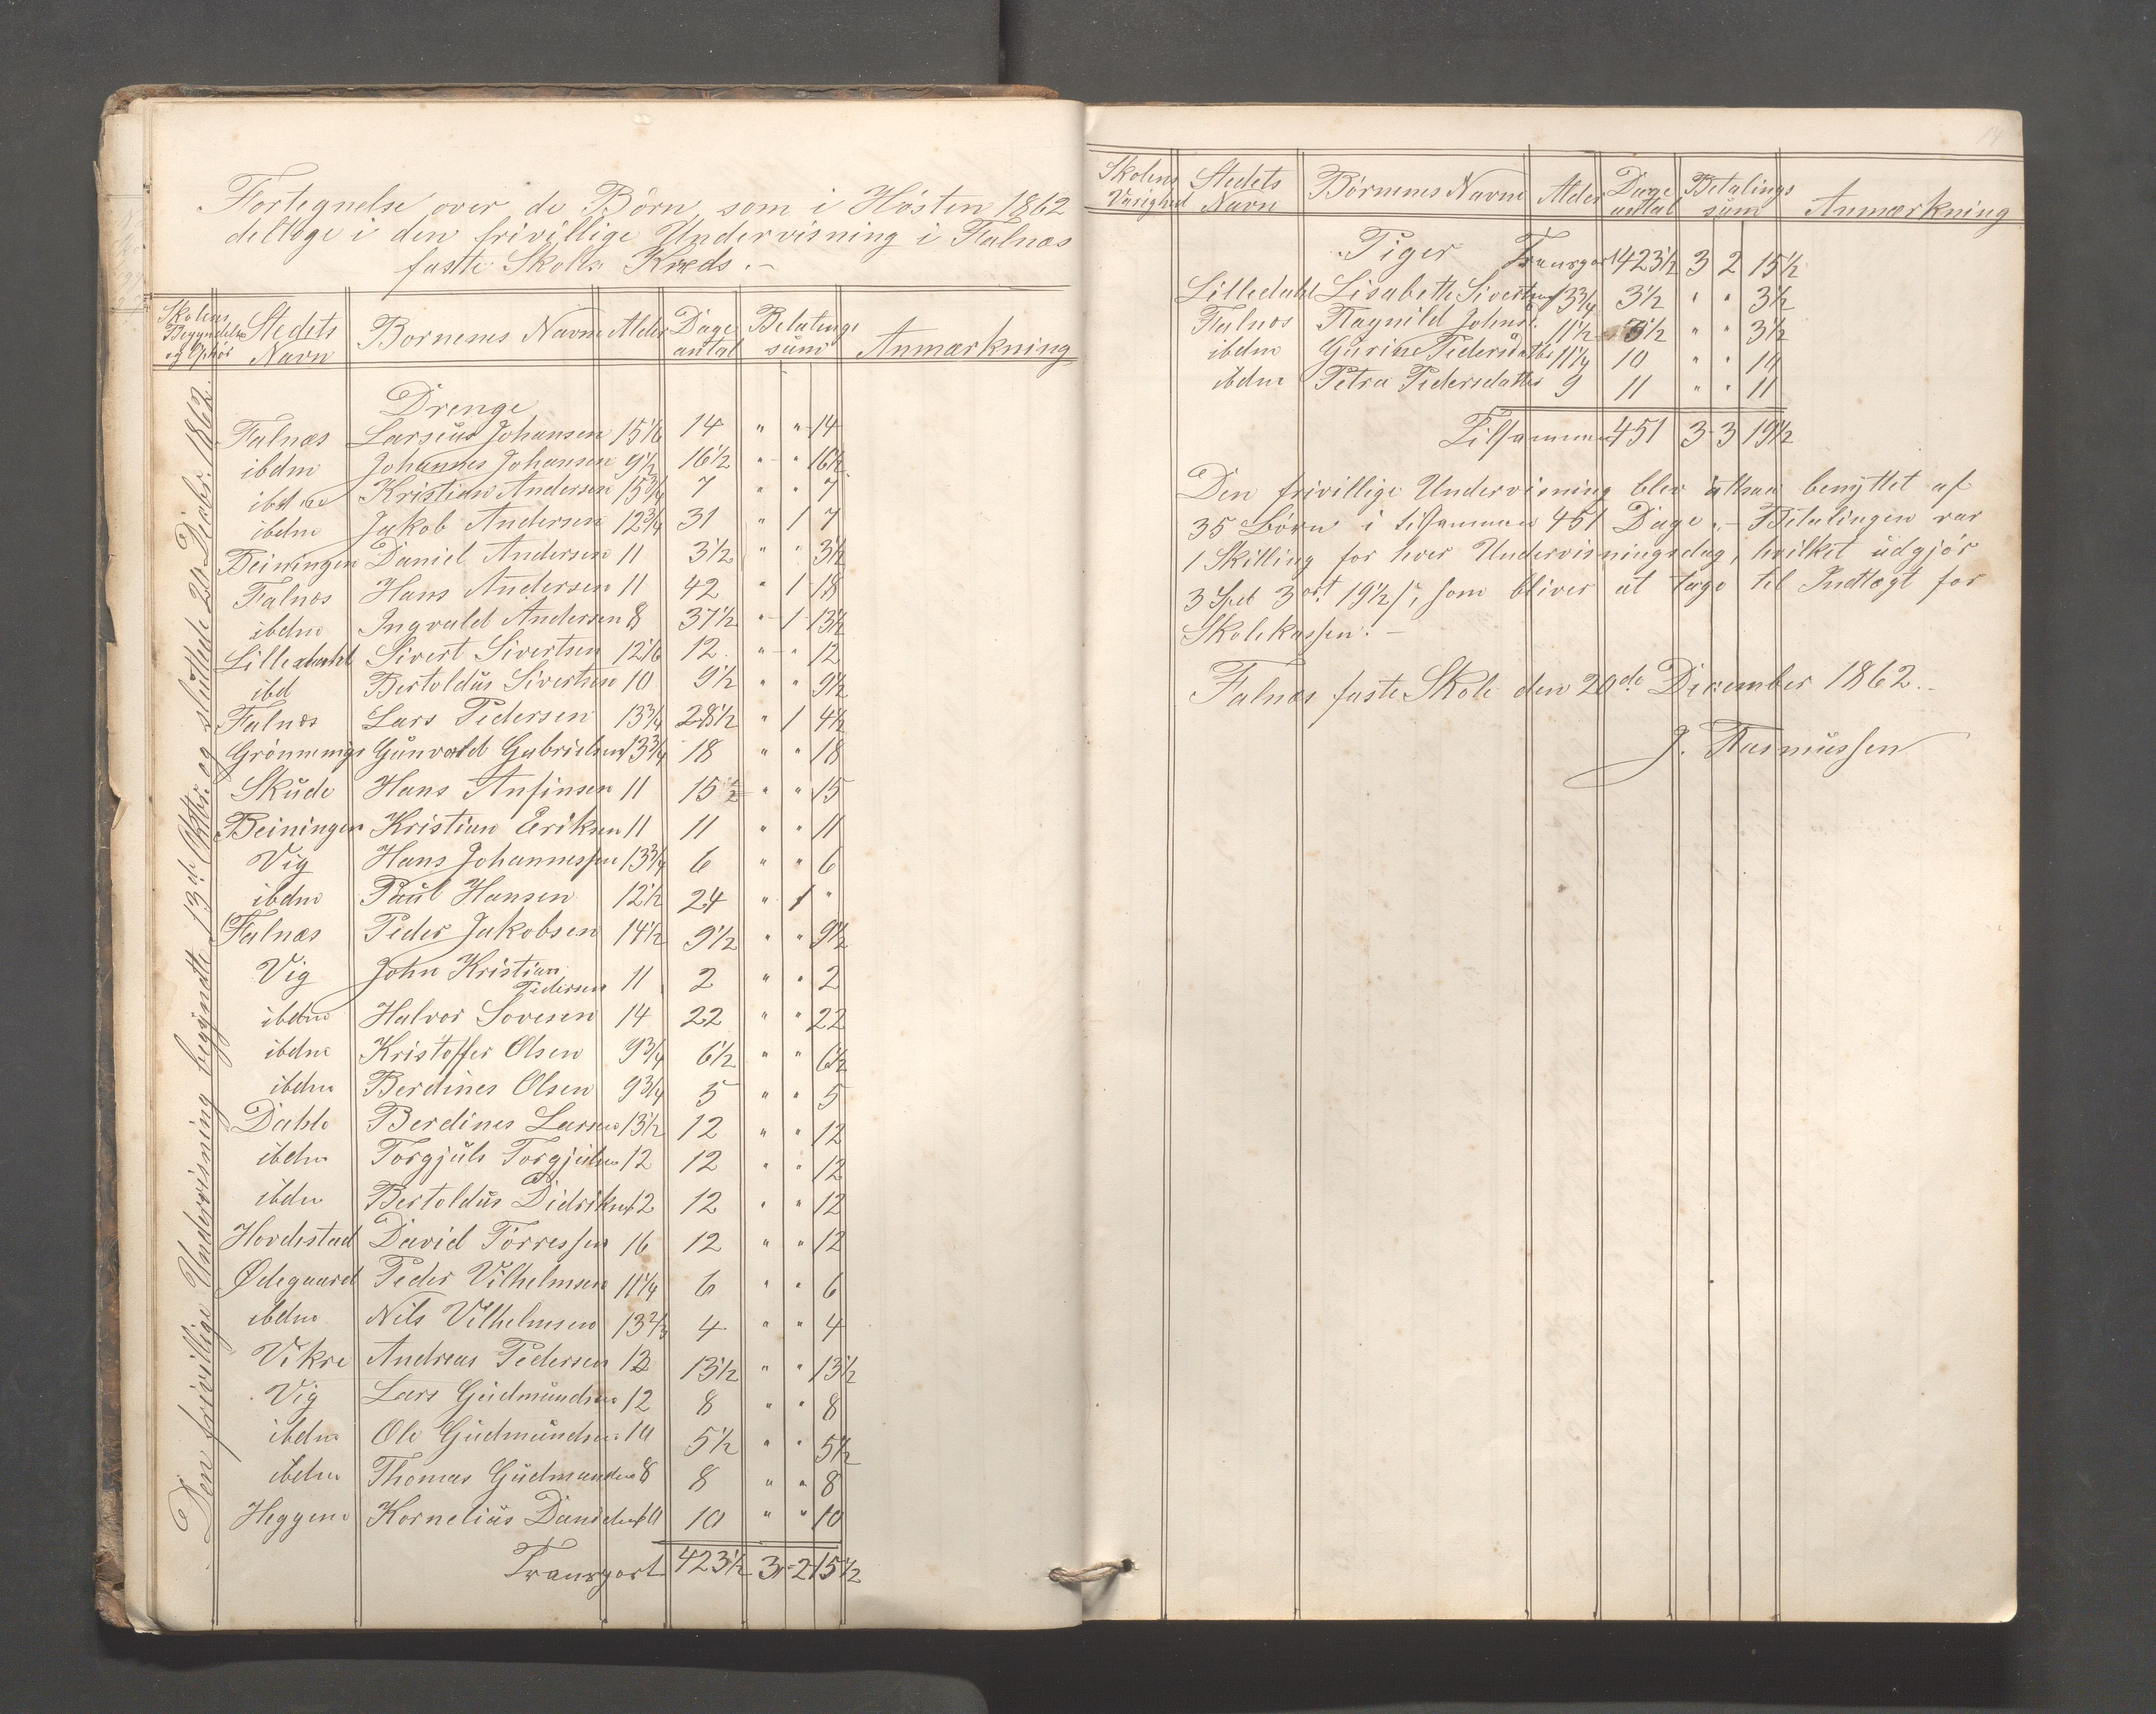 Fortegnelse over de Börn som i Hösten 1862
deltoge i den frivillige Undervisning i Falnæs
faste Skoles Kreds.-
Skolens Begyndelse og Ophör | Stedets Navn | Börnenes Navne | Alder | Dage antal | Betalings sum | Anmærkning
Den frivillige Undervisning begyndte 13de Oktbr. og sluttede 20 Decbr. 1862.
Drenge
Falnæs Larseus Johansen 15 1/6 14 " " 14
ibdm Johannes Johansen 9 1/2 16 1/2 " " 16 1/2
ibdm Kristian Andersen 15 3/4 7 " " 7
ibdm Jakob Andersen 12 3/4 31 " 1 7
Beiningen Daniel Andersen 11 3 1/2 " " 3 1/2
Falnæs Hans Andersen 11 42 " 1 18
ibdm Ingvald Andersen 8 37 1/2 " 1 13 1/2
Lilledahl Sivert Sivertsen 12 1/6 12 " " 12
ibd Bertoldus Sivertsen 10 9 1/2 " " 9 1/2
Falnæs Lars Pedersen 13 3/4 28 1/2 " 1 4 1/2
Grönnings Gunvald Gabrielsen 13 3/4 18 " " 18
Skude Hans Anfinsen 11 15 " " 15
Beiningen Kristian Eriksen 11 11 " " 11
Vig Hans Johannessen 13 3/4 6 " " 6
ibdm Paul Hansen 12 1/2 24 " 1 "
Falnæs Peder Jakobsen 14 1/2 9 1/2 " " 9 1/2
Vig John Kristian
Pedersen 11 2 " " 2
ibdm Halvor Sovesen 14 22 " " 22
ibdm Kristoffer Olsen 9 3/4 6 1/2 " " 6 1/2
ibdm Berdines Olsen 9 3/4 5 " " 5
Dahle Berdines Larsen 13 1/2 12 " " 12
ibdm Torgjuls Torgjulsen 12 12 " " 12
ibdm Bertoldus Didriksen 12 12 " " 12
Hovdestad David Torressen 16 12 " " 12
Ødegaard Peder Vilhelmsen 11 1/4 6 " " 6
ibdm Nils Vilhelmsen 13 2/3 4 " " 4
Vikre Andreas Pedersen 12 13 1/2 " " 13 1/2
Vig Lars Gudmundsen 12 8 " " 8
ibdm Ole Gudmundsen 10 5 1/2 " " 5 1/2
ibdm Thomas Gudmundsen 8 8 " " 8
Heggem Kornelius Danielsen 10 10 " " 10
Transport 423 1/2 3-2-15 1/2
14
Skolens Varighed | Stedets Navn | Börnenes Navne | Alder | Dage antal | Betalings sum | Anmærkning
Piger Transport 423 1/2 3 2 15 1/2
Lilledahl Lisabeth Sivertsen 13 3/4 3 1/2 " " 3 1/2
Falnæs Ragnild Johns. 11 1/2 3 1/2 " " 3 1/2
ibdm Gurine Pedersdatter 11 1/4 10 " " 10
ibdm Petra Pedersdatter 9 11 " " 11
Tilsammen 451 3-3 19 1/2
Den frivillige Undervisning blev altsaa benyttet af
35 Börn i tilsammen 451 Dage.- Betalingen var
1 Skilling for hver Undervisningsdag, hvilket udgjör
3 Spd 3 ort 19 1/2 s, som bliver at tage til Indtægt for
Skolekassen.-
Falnæs faste Skole den 20de December 1862.
J. Rasmussen